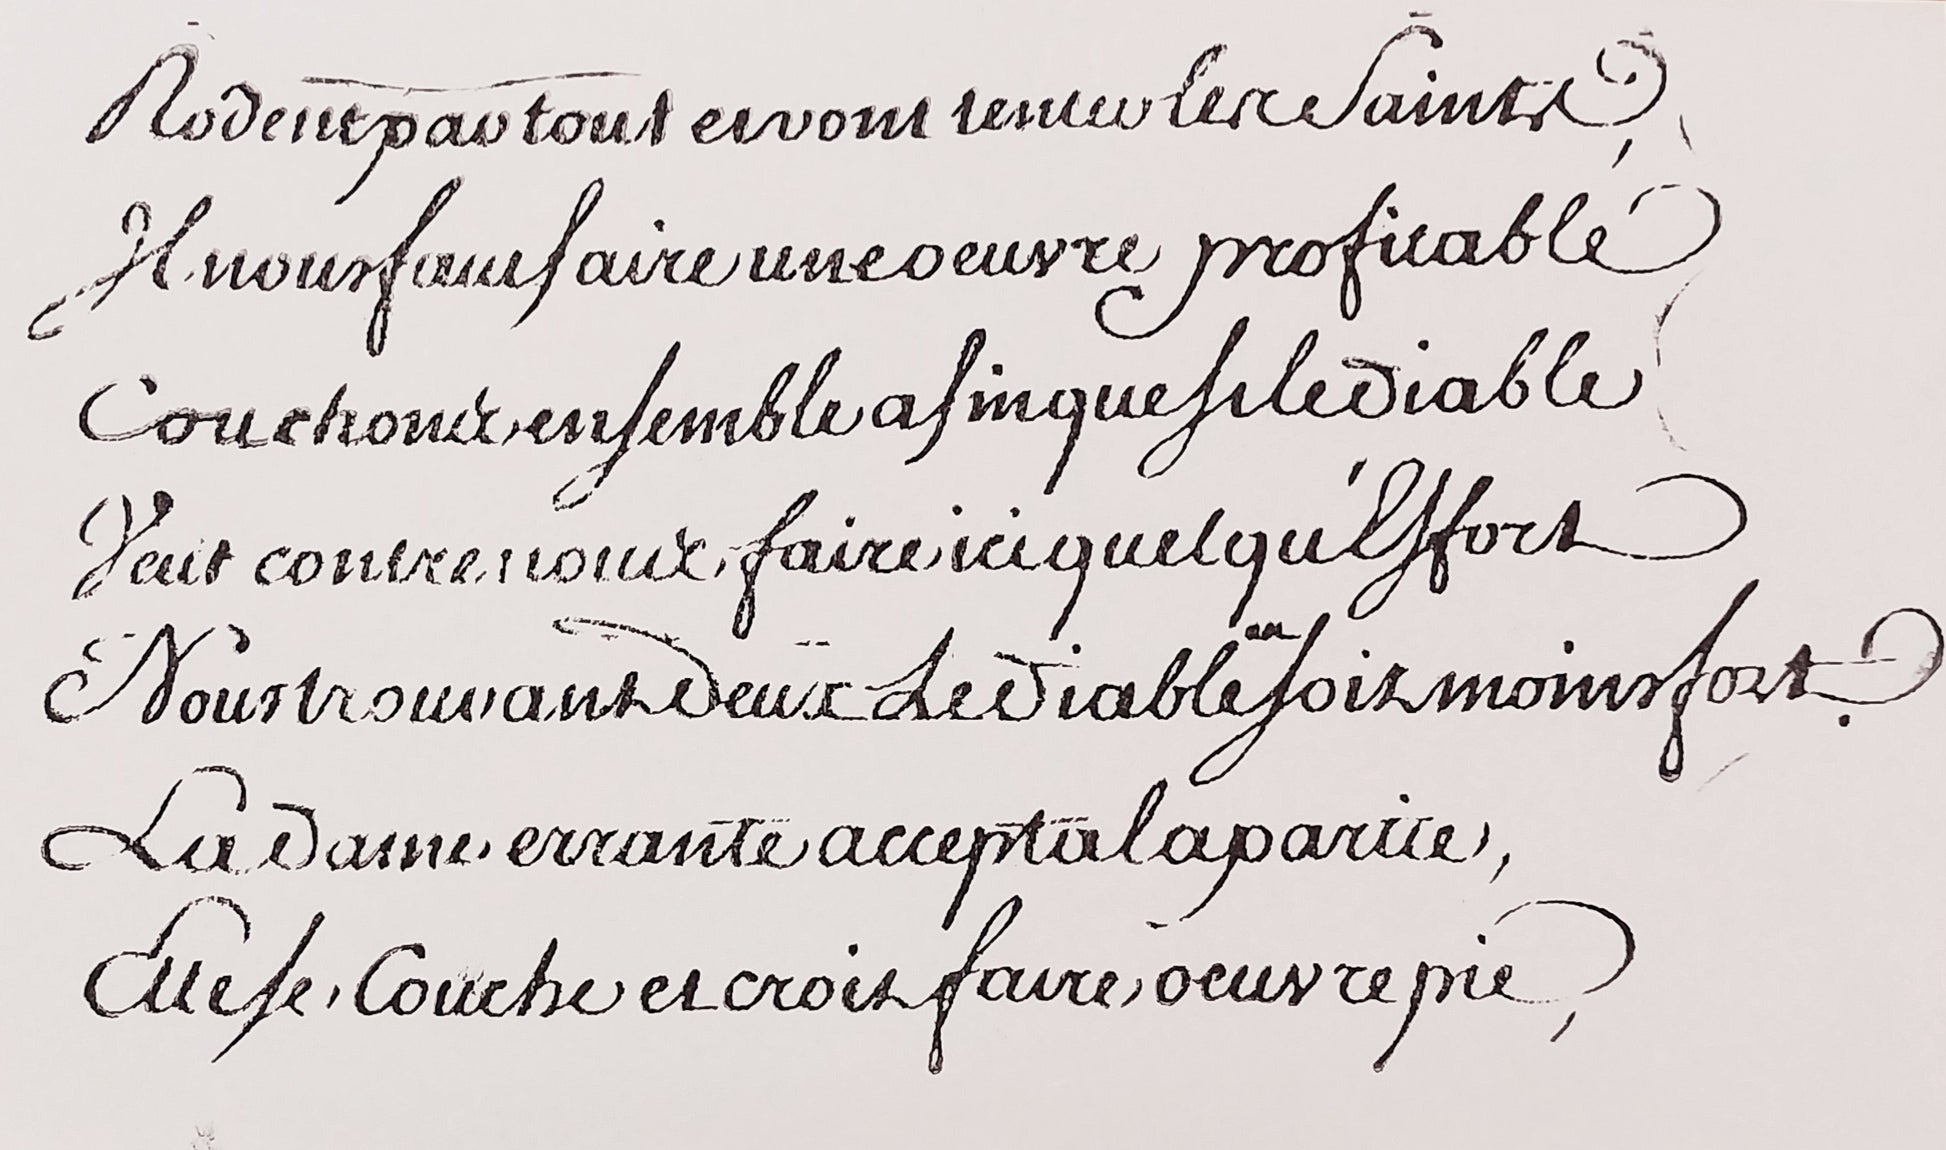 Rodent partout et vont tenter les Saints,
Il nous faut faire une oeuvre profitable
Couchons ensemble afin que si le diable
Veut contre nous faire ici quelqu'Effort
Nous trouvant deux Le diable en soit moins fort.
La dame errante accepta la partie,
Elle se Couche et croit faire oeuvre pie,